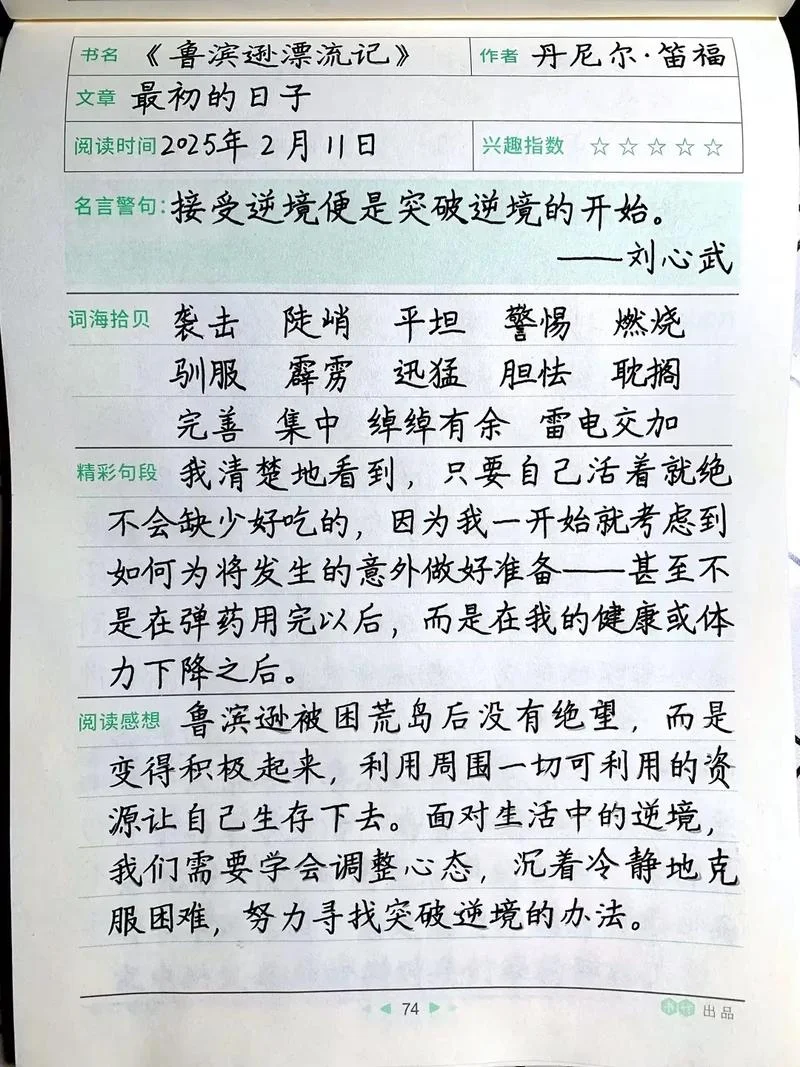 书名 《鲁滨逊漂流记》 作者 丹尼尔·笛福
文章 最初的日子
阅读时间 2025年2月11日 兴趣指数 ☆☆☆☆☆
名言警句: 接受逆境便是突破逆境的开始。
——刘心武
词海拾贝 袭击 陡峭 平坦 警惕 燃烧
驯服 霹雳 迅猛 胆怯 耽搁
完善 集中 绰绰有余 雷电交加
精彩句段 我清楚地看到，只要自己活着就绝
不会缺少好吃的，因为我一开始就考虑到
如何为将发生的意外做好准备——甚至不
是在弹药用完以后，而是在我的健康或体
力下降之后。
阅读感想 鲁滨逊被困荒岛后没有绝望，而是
变得积极起来，利用周围一切可利用的资
源让自己生存下去。面对生活中的逆境，
我们需要学会调整心态，沉着冷静地克
服困难，努力寻找突破逆境的办法。
74
出品